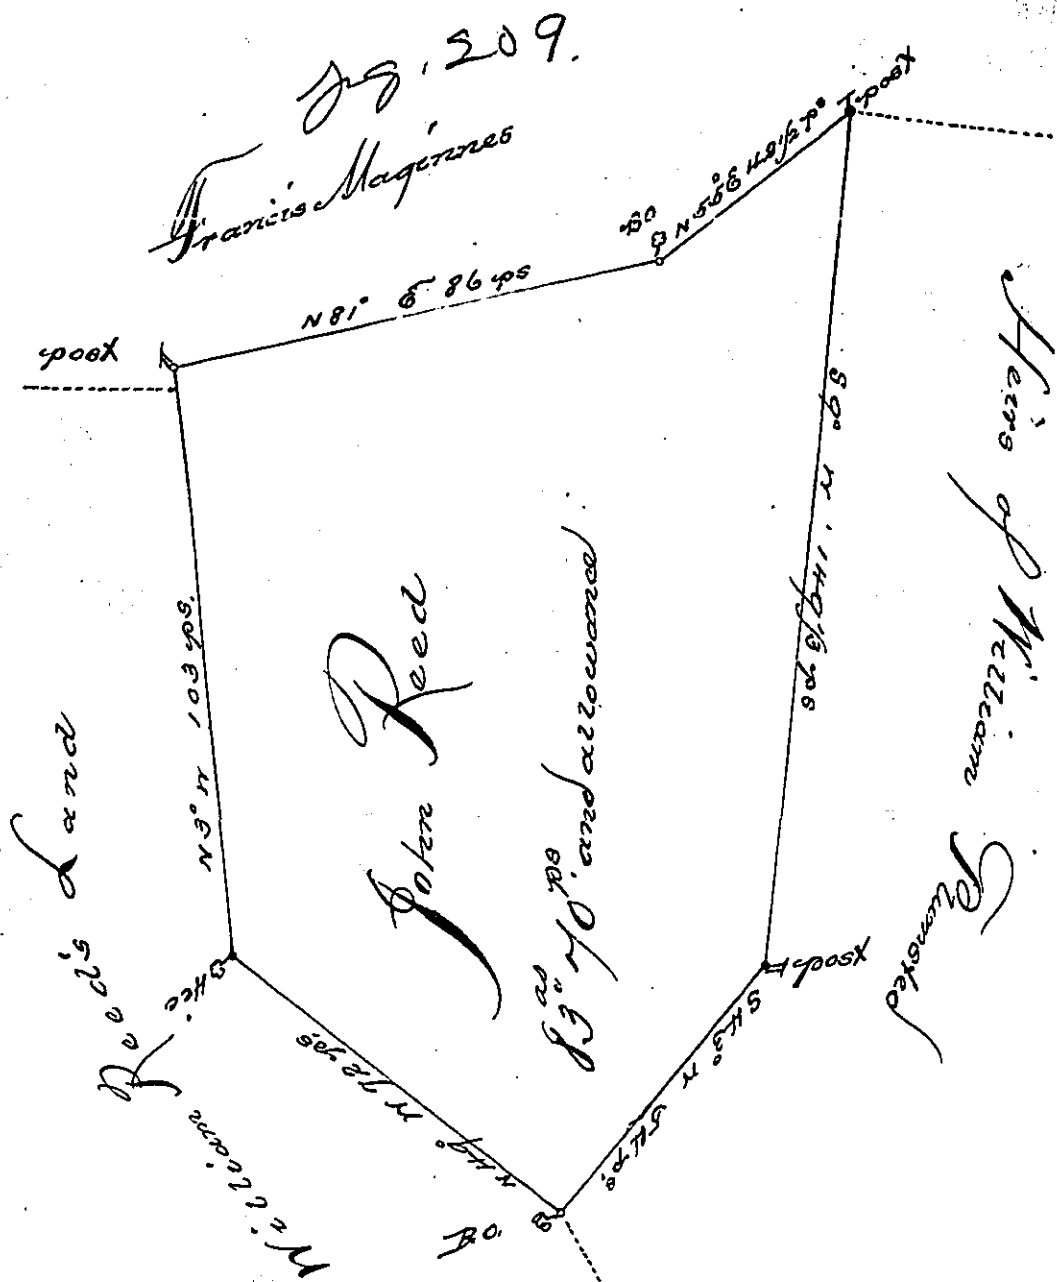 209.
Francis Maginnes
post
N 81° E 86 ps
BO
N 55° E
post
S 9° W. 149 1/3 ps
Heirs of William Plumsted
post
S 43° W 54 ps.
B.O.
N 49° W 72 ps.
Hic
N 3° W 103 ps.
William Reed's Land
John Reed
and allowance